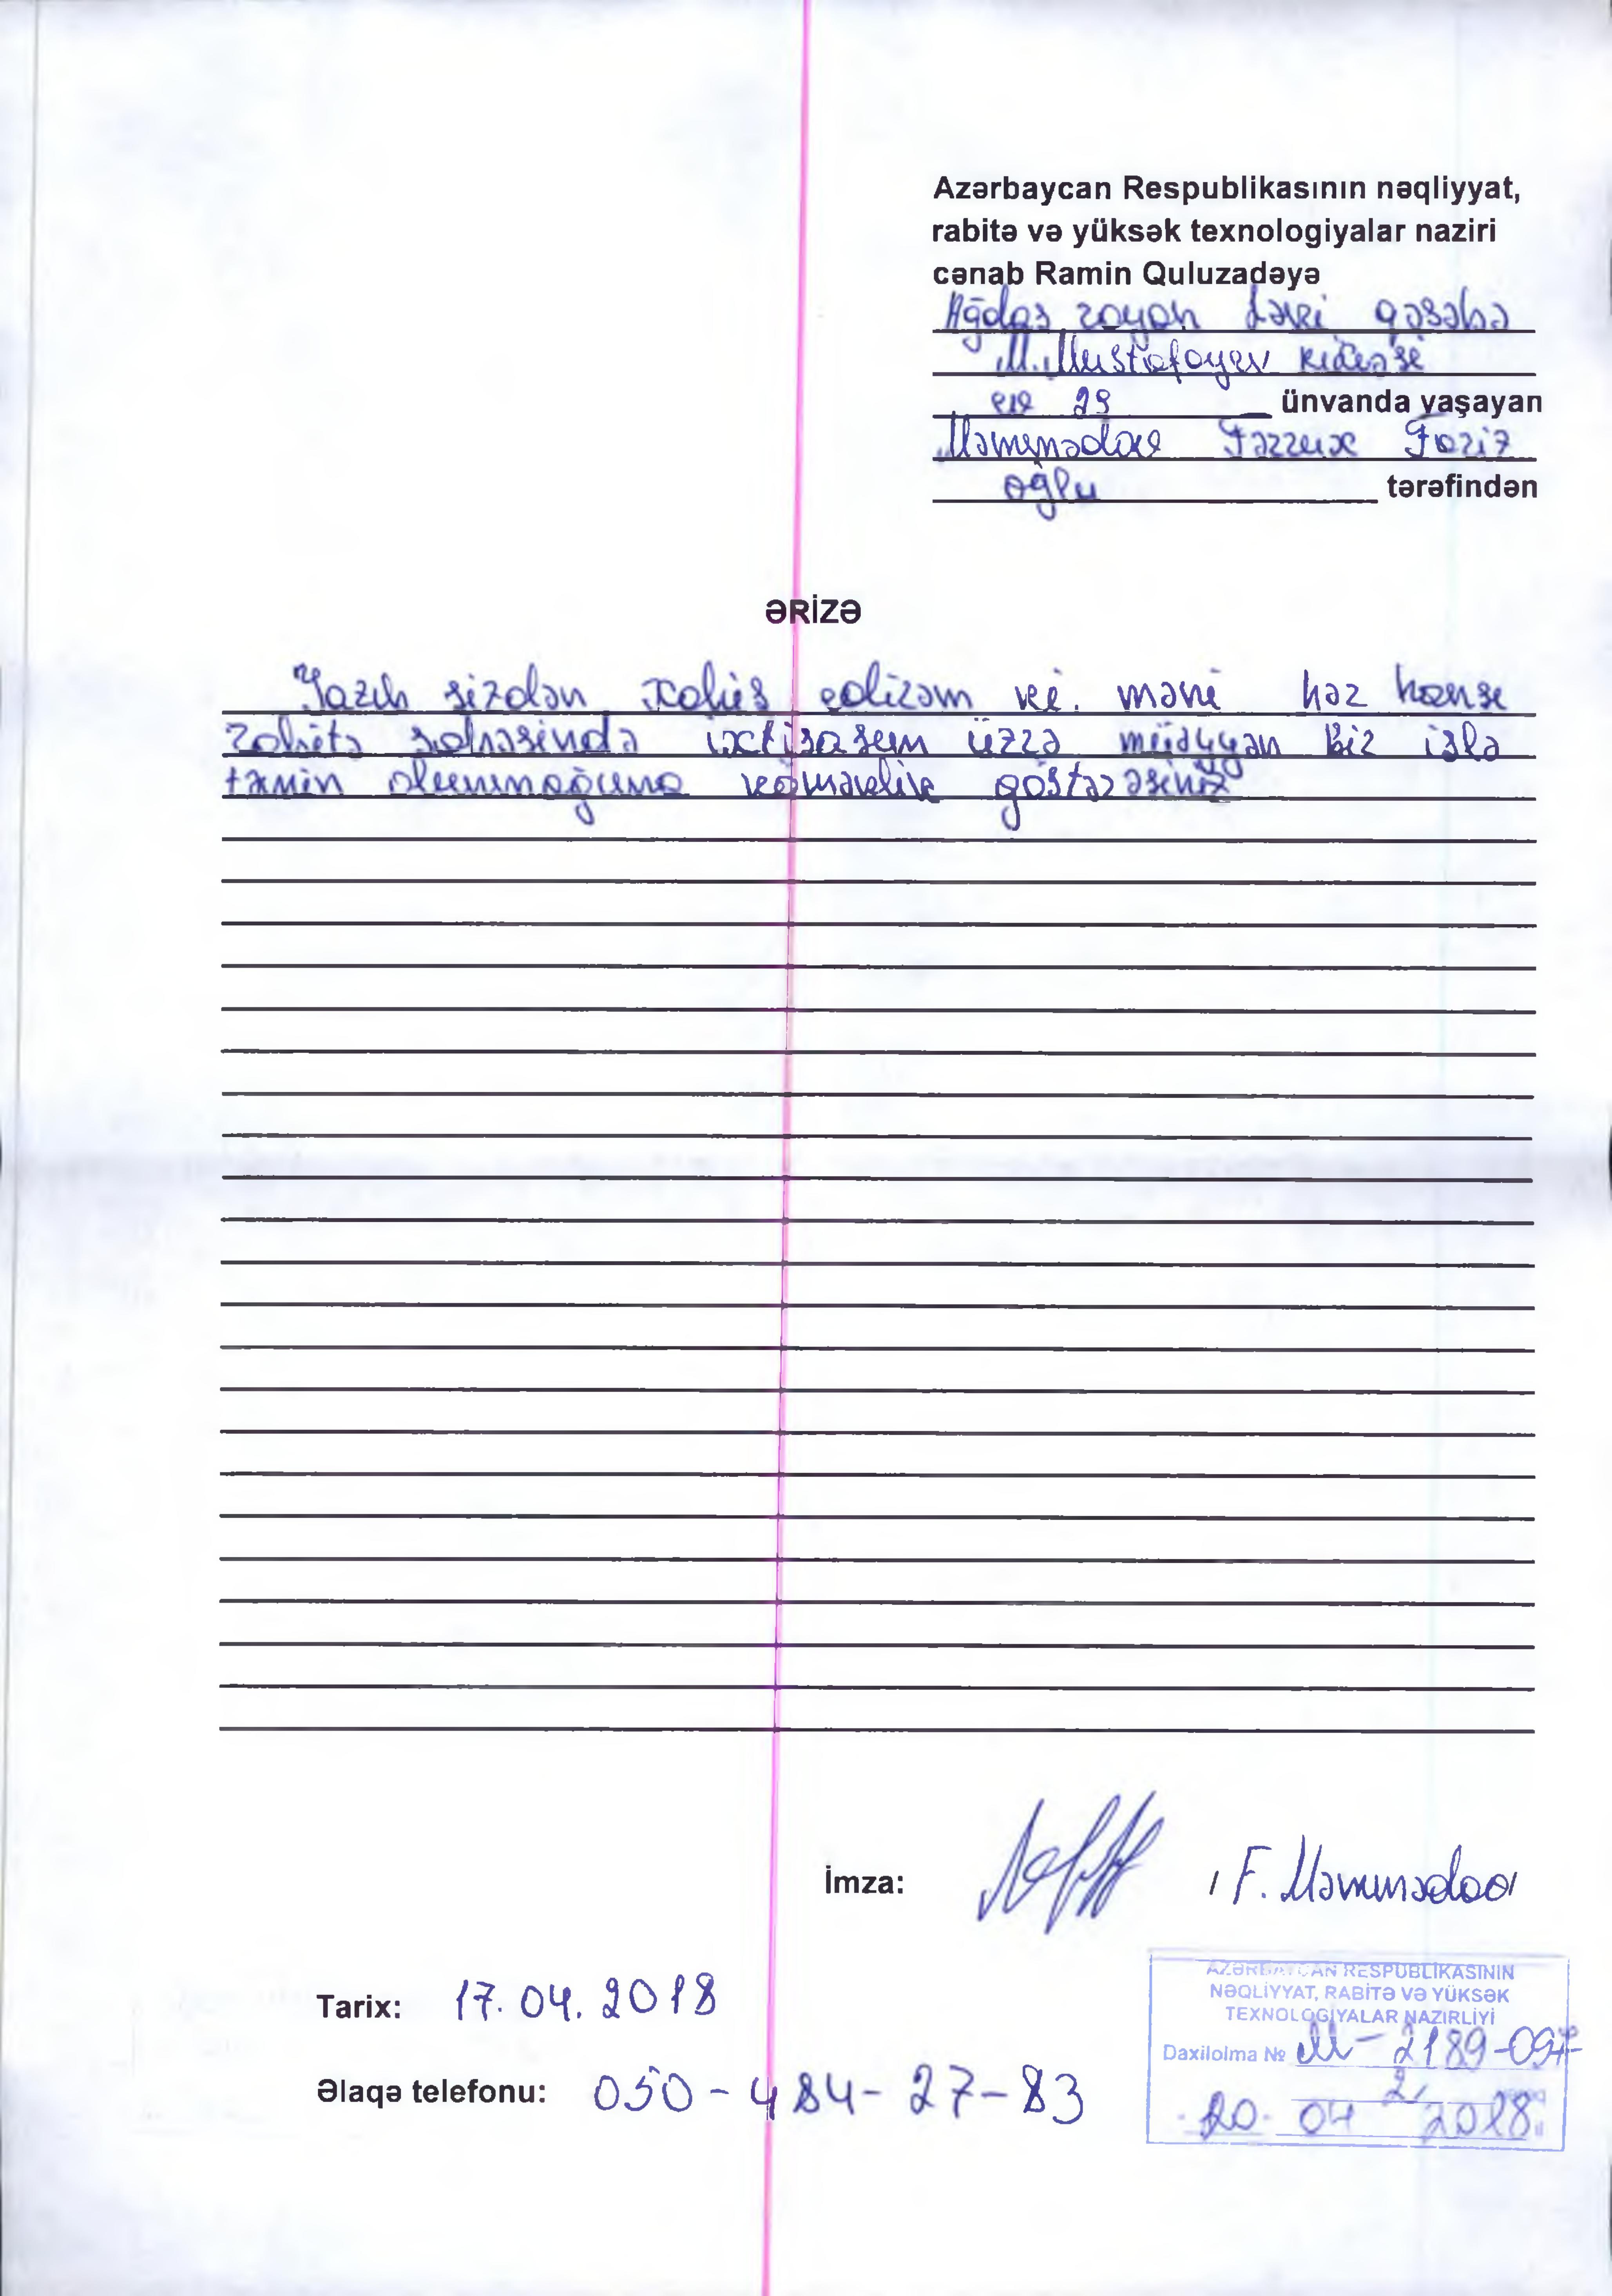 Azərbaycan Respublikasının nəqliyyat,
rabitə və yüksək texnologiyalar naziri
cənab Ramin Quluzadəyə
Ağdaş rayon Ləki qəsəbə
M. Mustafayev küçəsi
ev 29 ünvanda yaşayan
Məmmədov Fərrux Faziz
oğlu tərəfindən
ƏRİZƏ
Yazıb sizdən xahiş edirəm ki. məni hər hansı
rabitə sahəsində ixtisasım üzrə müəyyən bir işlə
təmin olunmağıma köməklik göstərəsiniz
İmza: F. Məmmədov
Tarix: 17.04.2018
Əlaqə telefonu: 050-484-27-83
AZƏRBAYCAN RESPUBLİKASININ
NƏQLİYYAT, RABİTƏ VƏ YÜKSƏK
TEXNOLOGİYALAR NAZİRLİYİ
Daxilolma № M-2189-09
20. 04 2018